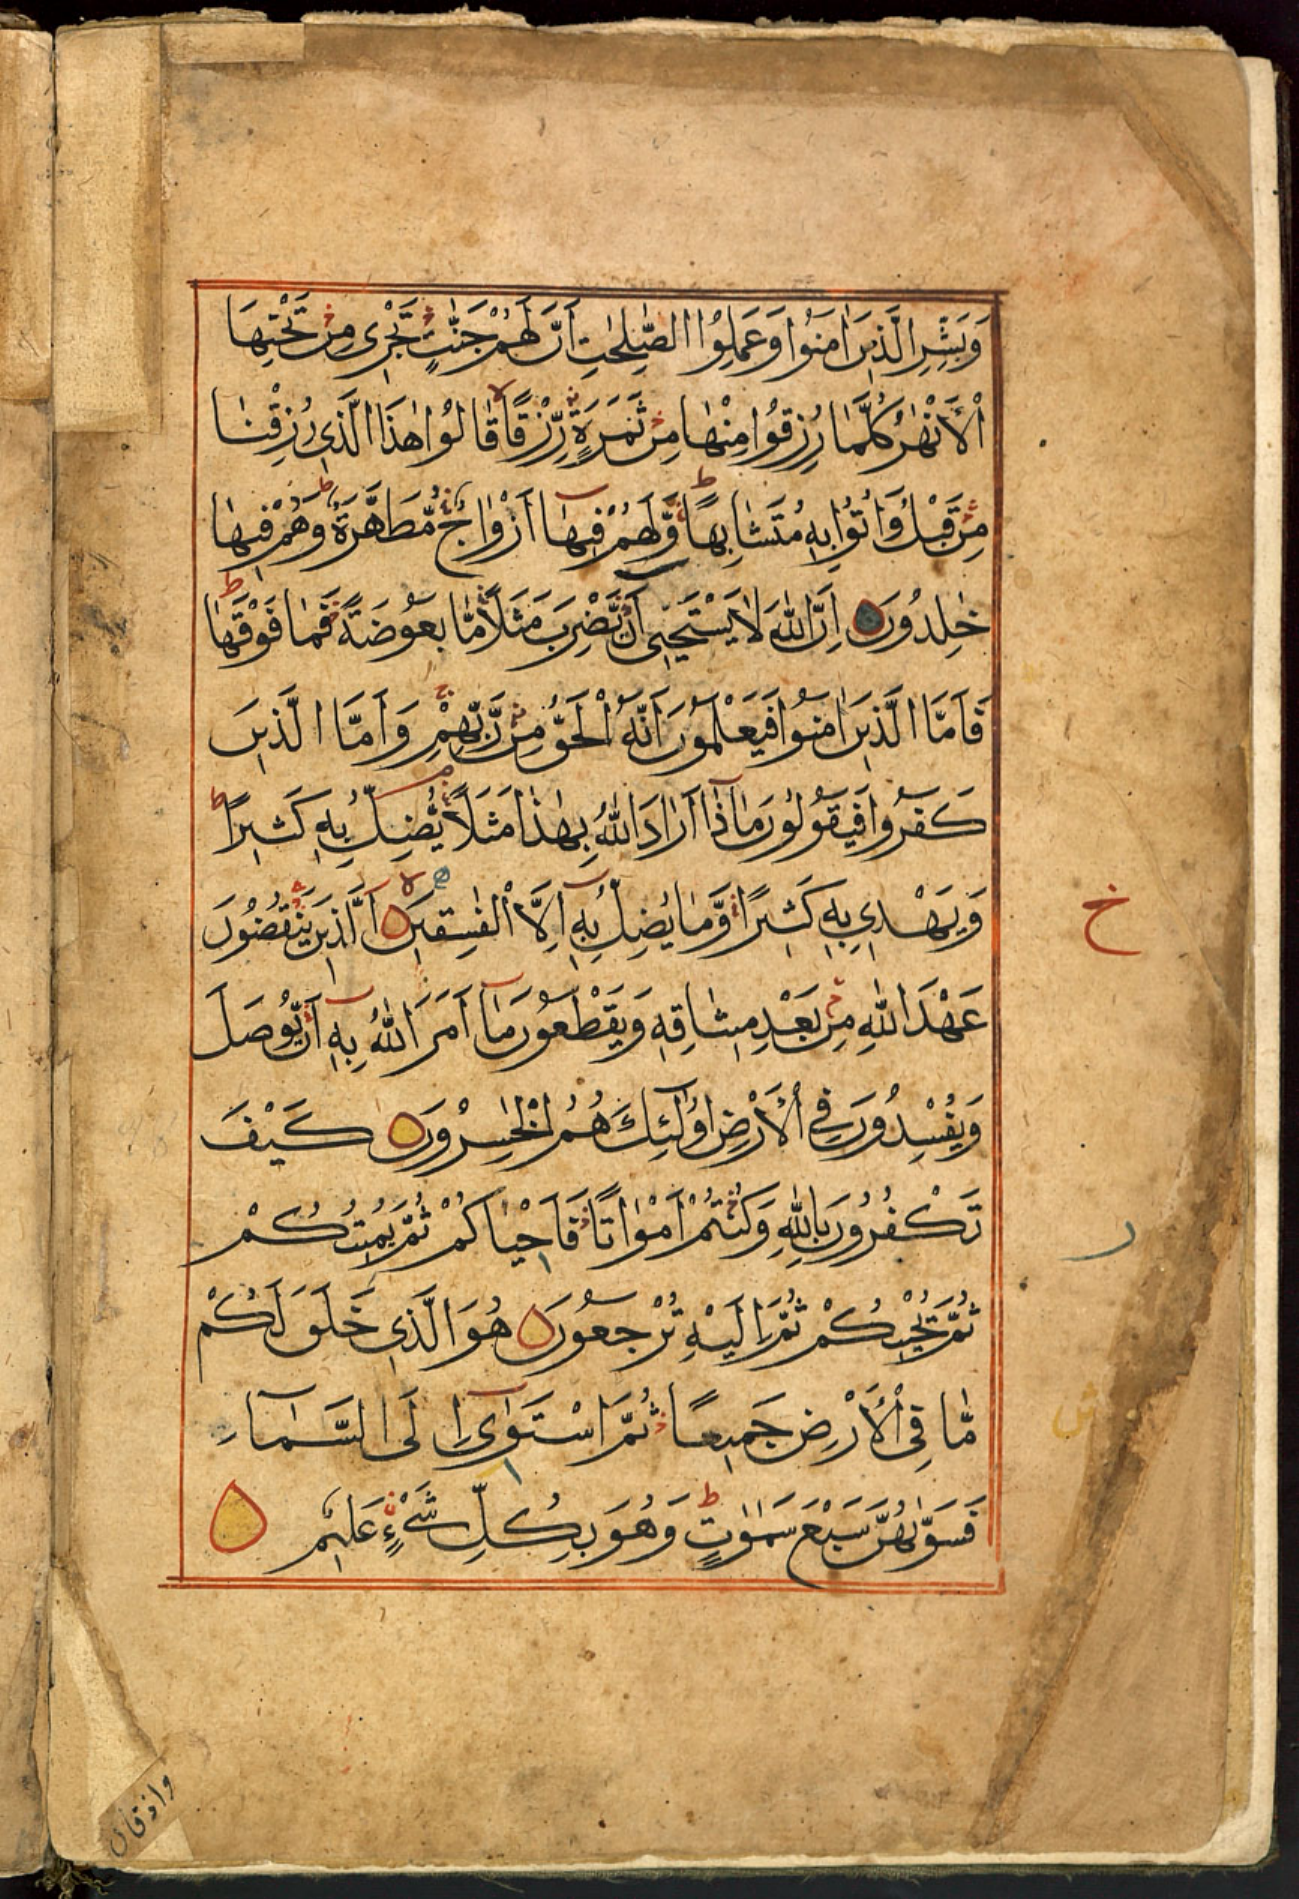 وَبَشِّرِ الَّذِينَ اٰمَنُوا وَعَمِلُوا الصّٰلِحٰتِ اَنَّ لَهُمْ جَنّٰتٍ تَجْرِى مِنْ تَحْتِهَا
الْاَنْهٰرُ كُلَّمَا رُزِقُوا مِنْهَا مِنْ ثَمَرَةٍ رِّزْقًا قَالُوا هٰذَا الَّذِى رُزِقْنَا
مِنْ قَبْلُ وَاُتُوْا بِهٖ مُتَشَابِهًا وَّلَهُمْ فِيهَا اَزْوَاجٌ مُّطَهَّرَةٌ وَهُمْ فِيهَا
خٰلِدُونَ اِنَّ اللّٰهَ لَا يَسْتَحْيٖى اَنْ يَّضْرِبَ مَثَلًا مَّا بَعُوضَةً فَمَا فَوْقَهَا
فَاَمَّا الَّذِينَ اٰمَنُوا فَيَعْلَمُونَ اَنَّهُ الْحَقُّ مِنْ رَّبِّهِمْ وَاَمَّا الَّذِينَ
كَفَرُوا فَيَقُولُونَ مَاذَا اَرَادَ اللّٰهُ بِهٰذَا مَثَلًا يُّضِلُّ بِهٖ كَثِيرًا
وَيَهْدِى بِهٖ كَثِيرًا وَّمَا يُضِلُّ بِهٖ اِلَّا الْفٰسِقِينَ اَلَّذِينَ يَنْقُضُونَ
خ
عَهْدَ اللّٰهِ مِنْ بَعْدِ مِيثَاقِهٖ وَيَقْطَعُونَ مَا اَمَرَ اللّٰهُ بِهٖ اَنْ يُّوصَلَ
وَيُفْسِدُونَ فِى الْاَرْضِ اُولٰئِكَ هُمُ الْخٰسِرُونَ كَيْفَ
تَكْفُرُونَ بِاللّٰهِ وَكُنْتُمْ اَمْوَاتًا فَاَحْيَاكُمْ ثُمَّ يُمِيتُكُمْ
ر
ثُمَّ يُحْيِيكُمْ ثُمَّ اِلَيْهِ تُرْجَعُونَ هُوَ الَّذِى خَلَقَ لَكُمْ
مَّا فِى الْاَرْضِ جَمِيعًا ثُمَّ اسْتَوٰى اِلَى السَّمَاءِ
فَسَوّٰىهُنَّ سَبْعَ سَمٰوٰتٍ وَهُوَ بِكُلِّ شَىْءٍ عَلِيمٌ
واذقال